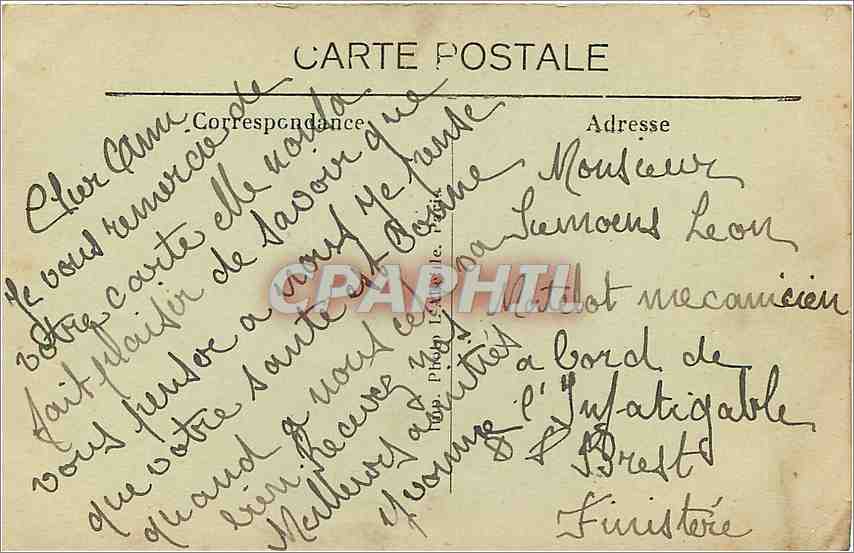 CARTE POSTALE
Correspondance
Adresse
Cher Ami
Je vous remercie de
votre carte elle nous a
fait plaisir de savoir que
vous pensez a nous je pense
que votre santé est bonne
quand a nous ces va
bien Recevez nos
Meilleures amitiés
Yvonne
Monsieur
Leon
Matelot mecanicien
a bord de
l'Infatigable
Brest
Finistère
Imp. Photo
CPAPHIL